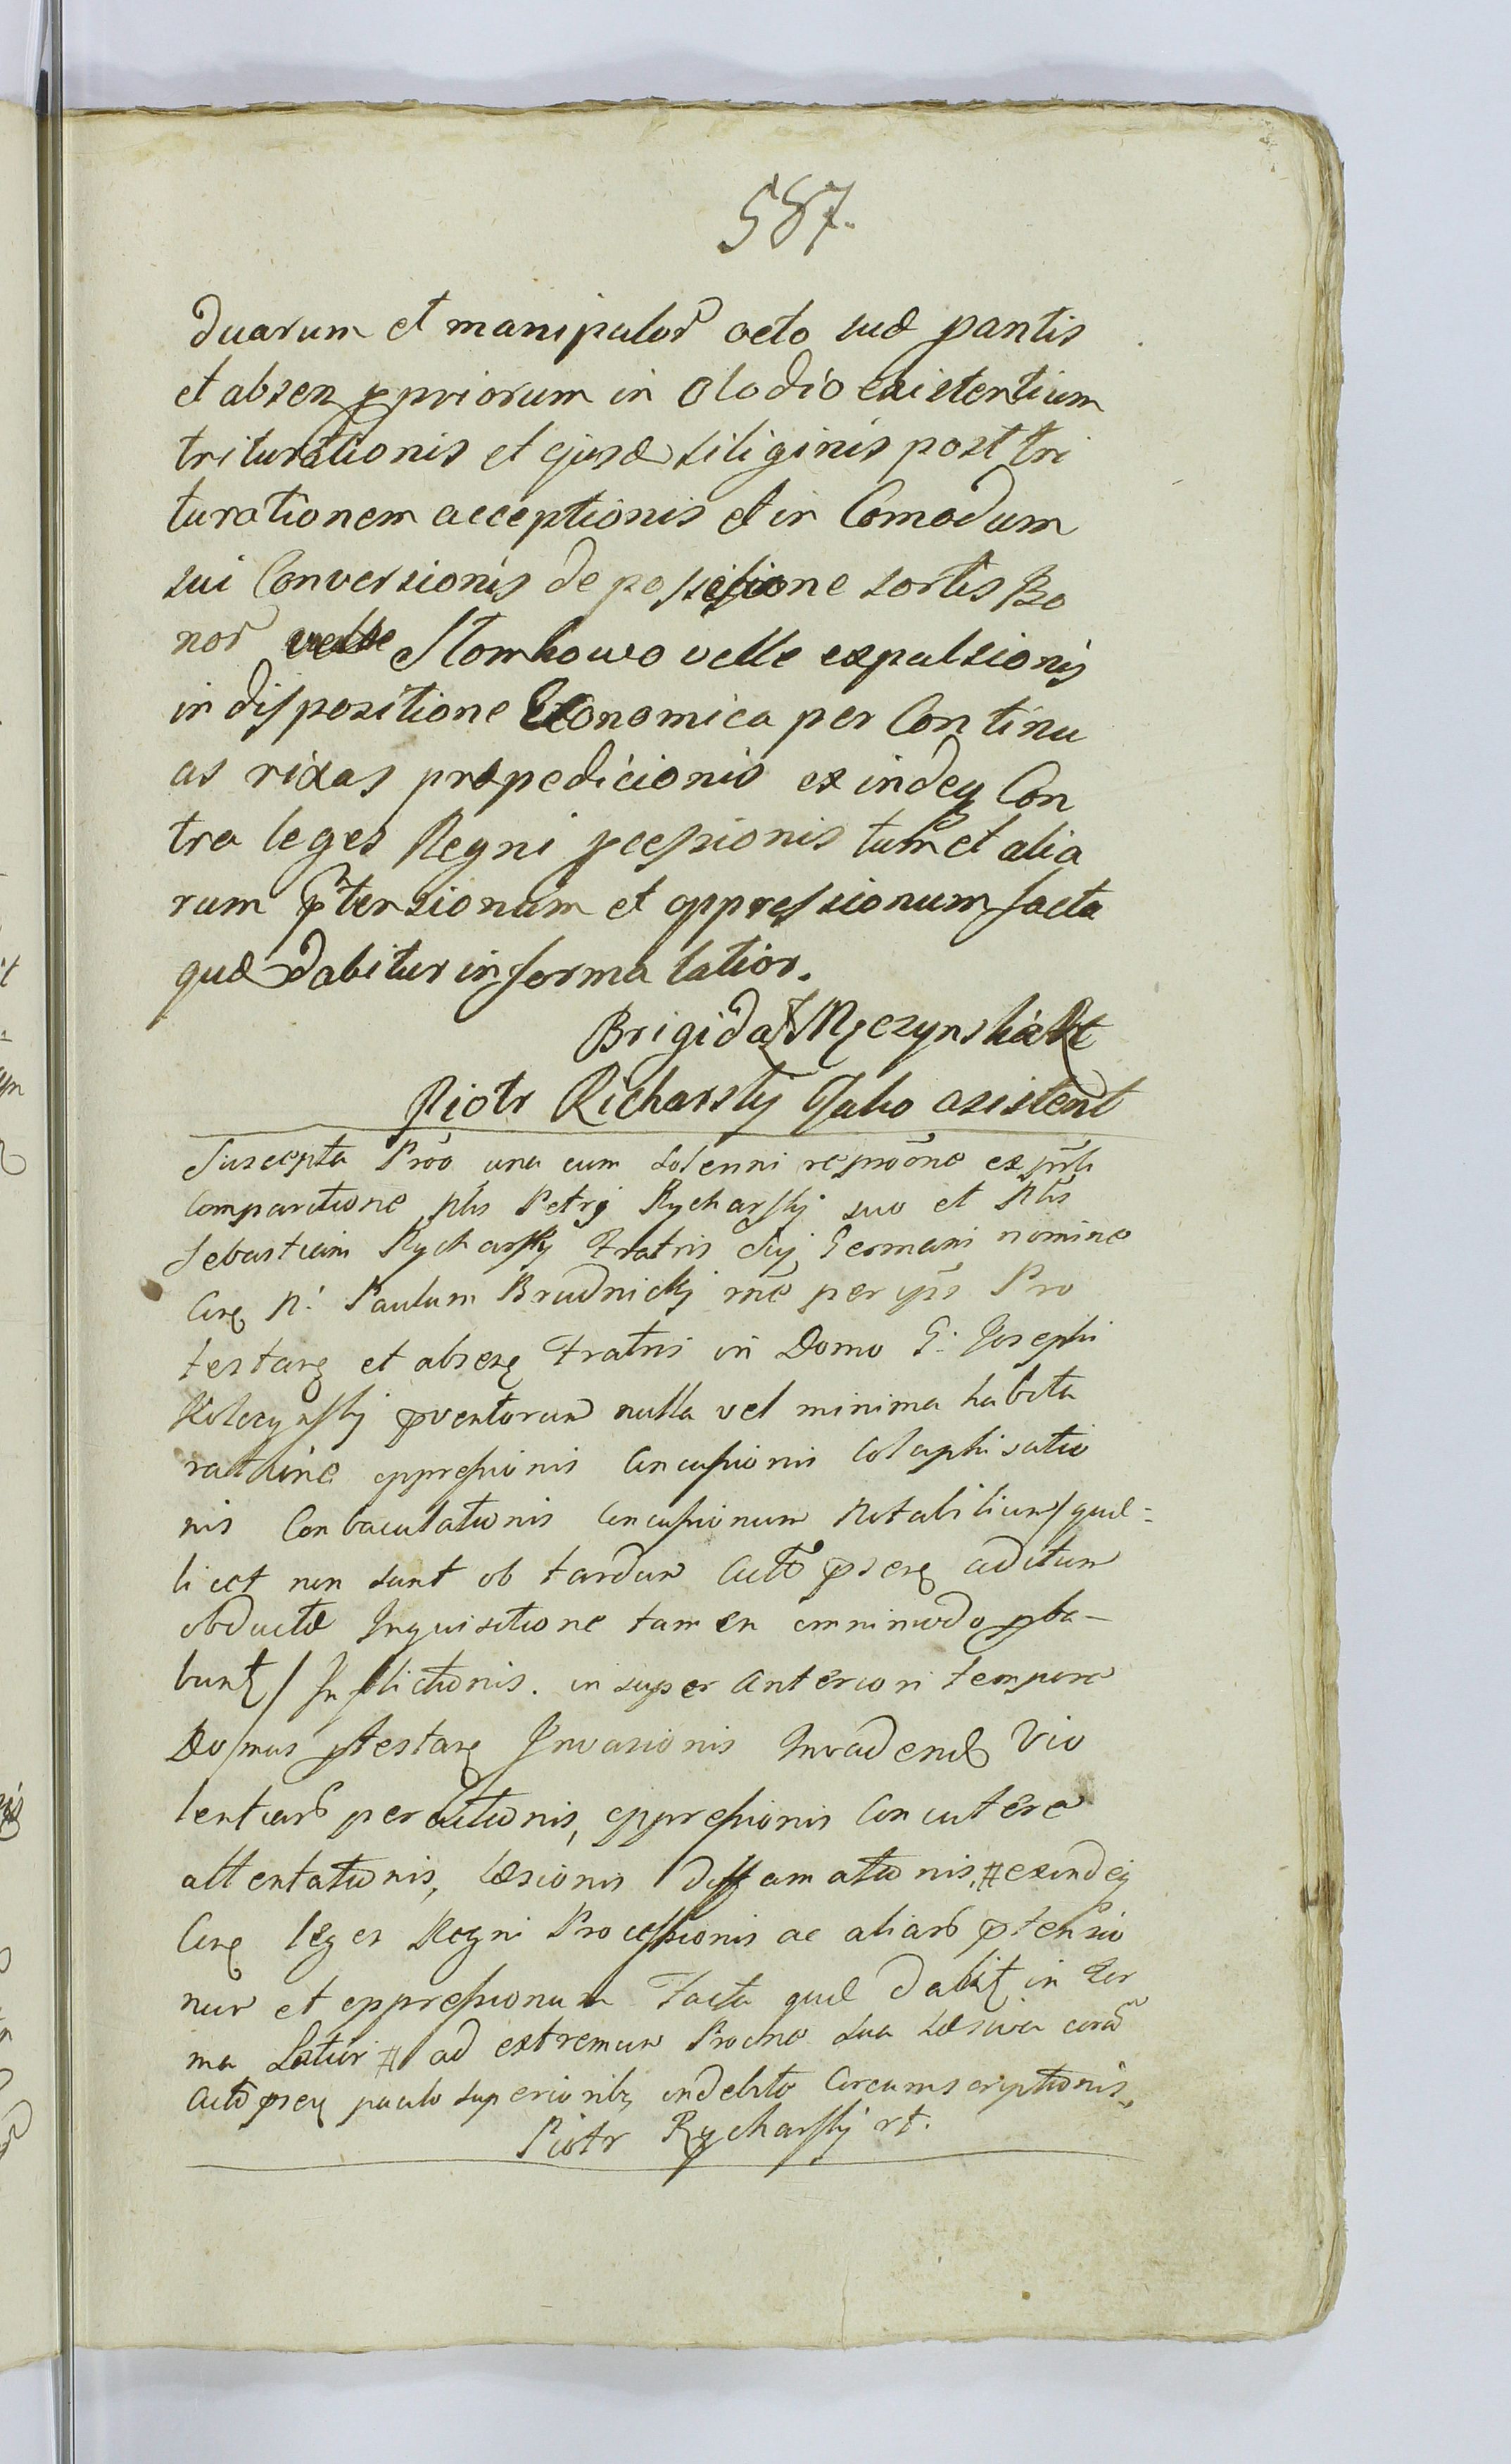 587.
duarum et manipulor octo suæ pantis
et absen ppriorum in Clodio existentium
triturationis et ejusd siliginis post tri
turationem acceptionis et in Comodum
sui Conversionis de possessione sortis Bo
nor Slomkowo velle expulsionis
in dispositione Economica per Continu
as rixas præpedicionis exindeq Con
tra leges Regni pcessionis tum et alia
rum ptensionum et oppressionum facta
quæ dabitur in forma latior.
Brigida Męczynska
Piotr Richarsky Jako asistent
Suscepta Prõõ una cum solenni reprõõne ex prñti
Comparitione Nlis Petri Rycharsky suo et Nlis
Sebastiani Rycharsky Fratris Sui Germani nomine
Cirę N: Paulum Brudnicki rñe per ipss Pro
testarę et absenę Fratris in Domo G: Josephi
Kolczynsky pventorum nulla vel minima habita
rathione oppressionis Concussionis Colaphisatio
nis Conbaculationis Concussionum Notabilium/ quæ=
licet non sunt ob tardum Actõ psenę aditum
obductæ Inquisitione tamen omnimodo pba-
bunt/ Inflictionis. insuper anteriori tempore
Domus ptestarę Invasionis Invadend Vio
lentiarũ percutionis, oppressionis Concutere
attentationis, Læsionis Diffamationis, # exindeq
Cirę leges Regni Processionis ac aliarũ ptensio
num et oppressionum Facta quæ dabit in For
ma Latior # ad extremum Procne sua Læsiva corã
Actõ psen paulo superioribq indebito Circumscriptionis,
Piotr Rycharsky rt.